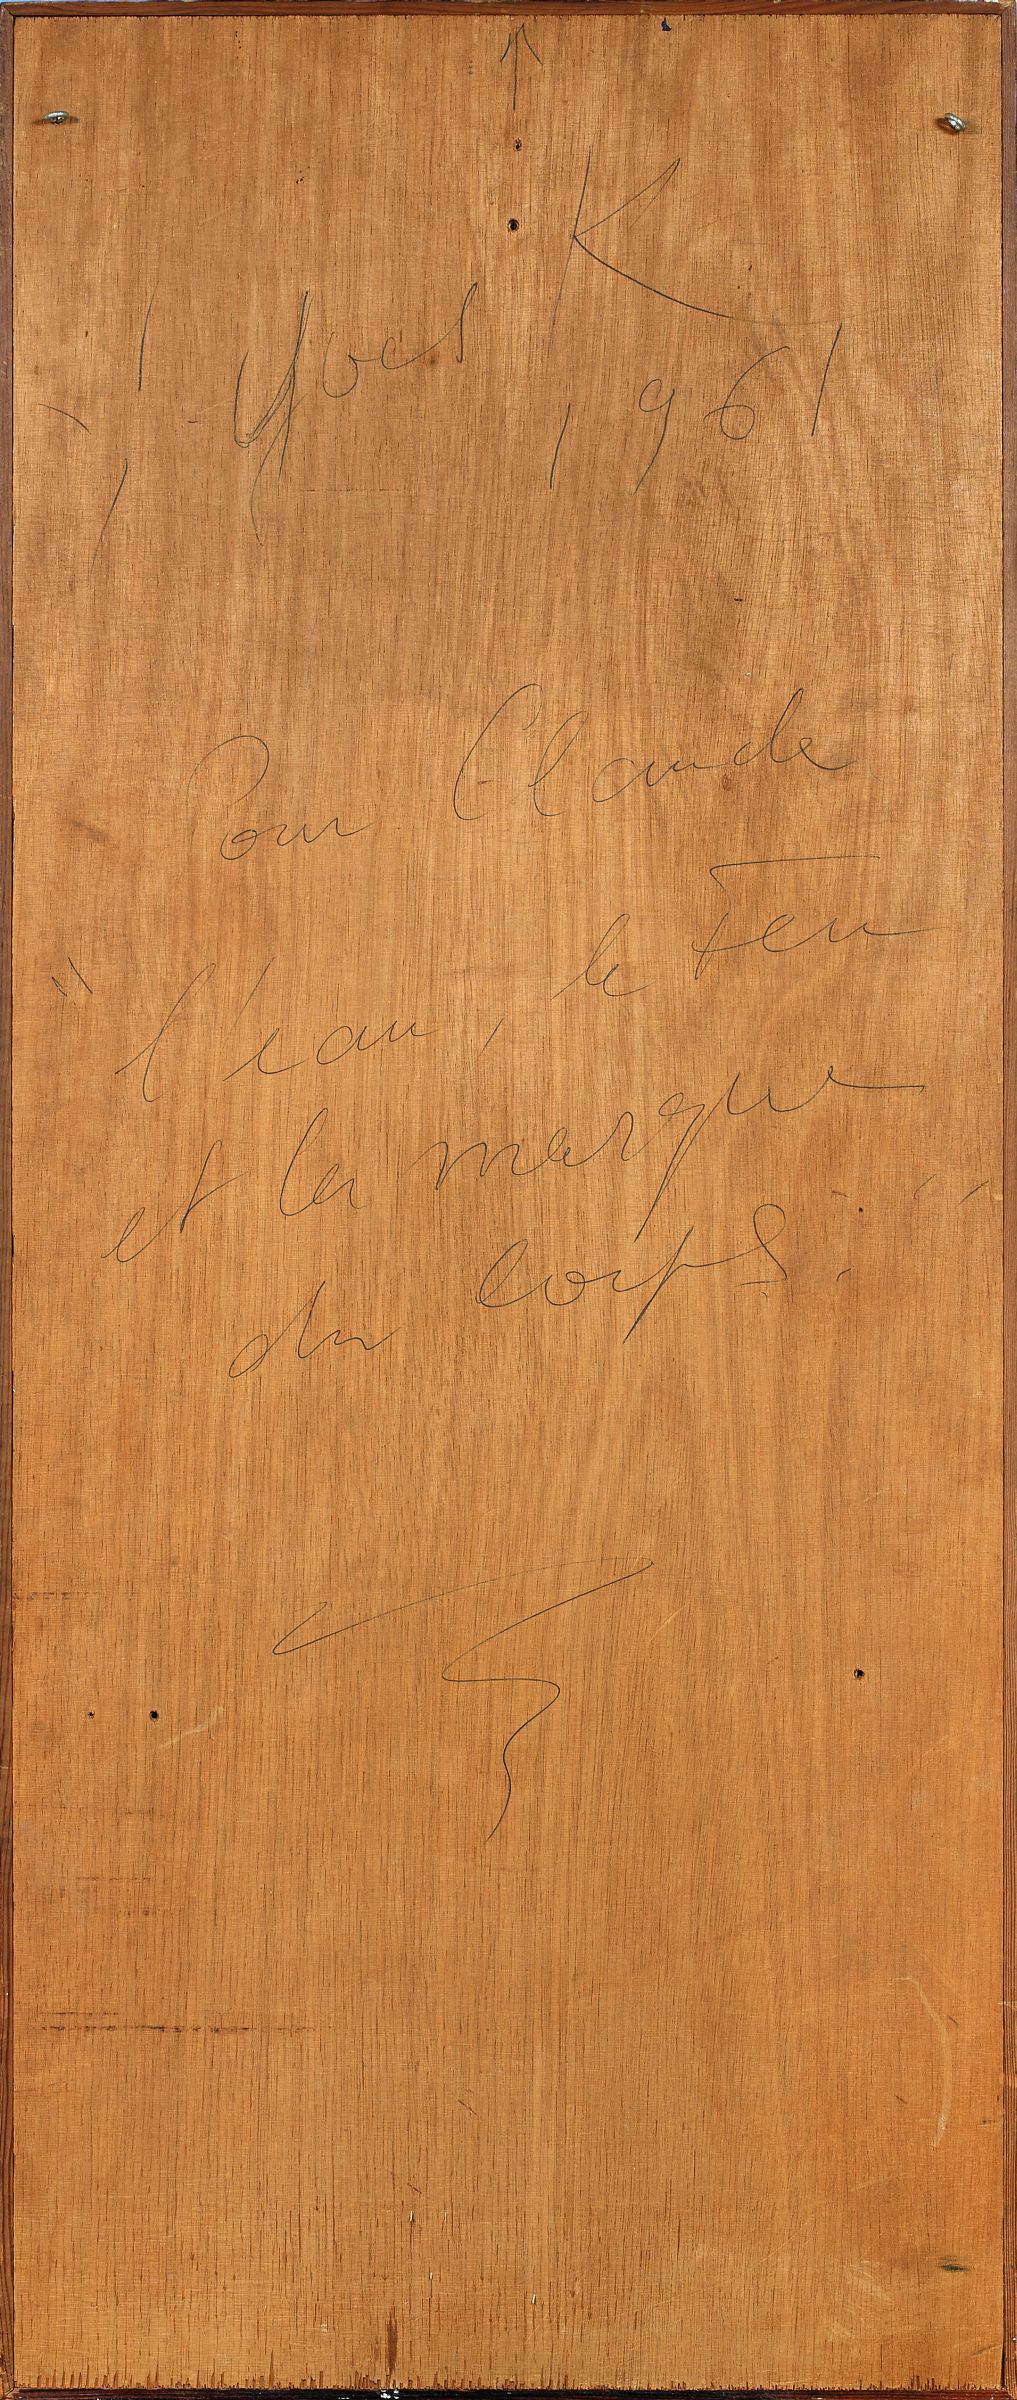 Yves K
1961
Pour Claude
"l'eau, le Feu
et la marque
du corps."